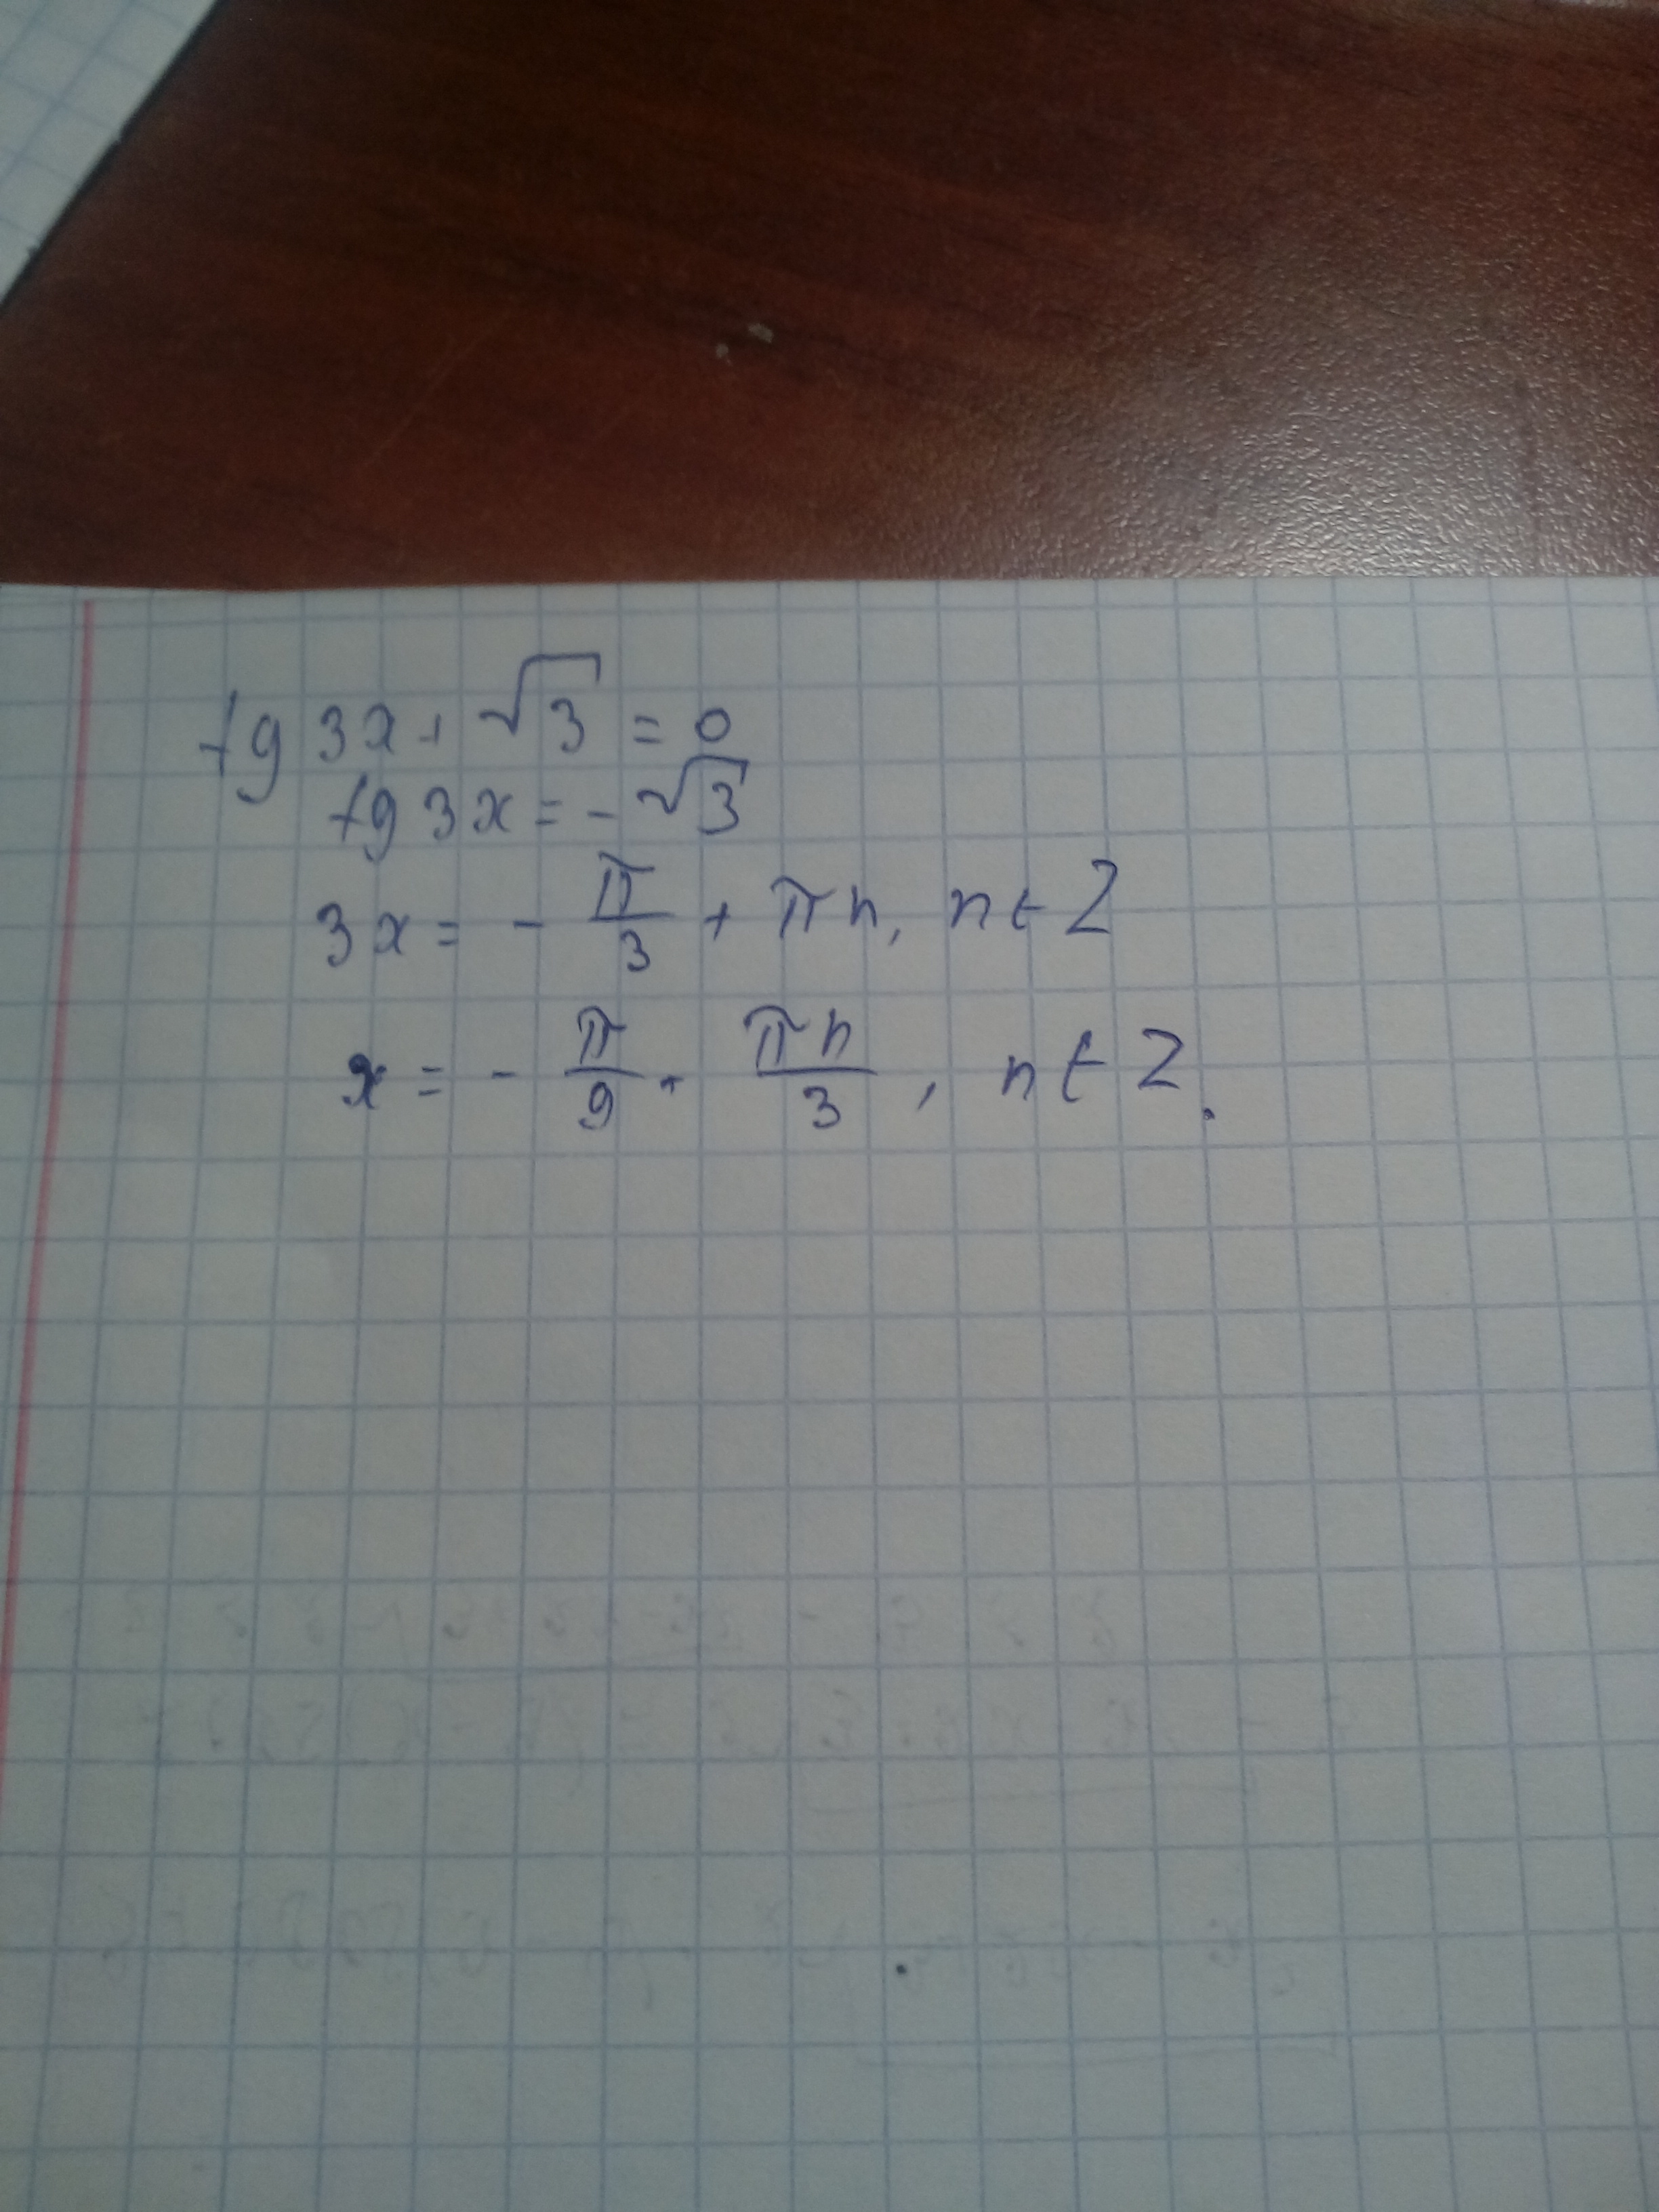 tg 3x + √3 = 0
tg 3x = - √3
3x = - π/3 + πn, n ∈ Z
x = - π/9 + πn/3, n ∈ Z.